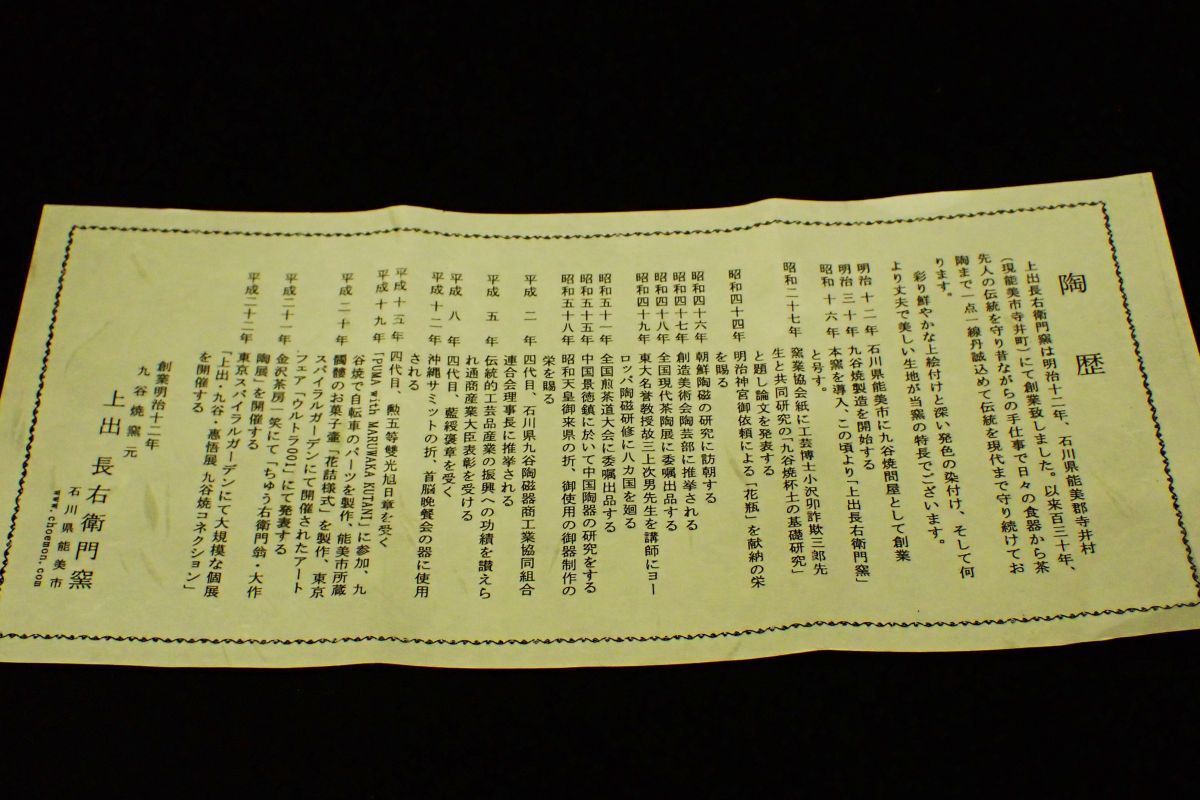 陶歴
上出長右衛門窯は明治十二年、石川県能美郡寺井村
(現能美市寺井町)にて創業致しました。以来百三十年、
先人の伝統を守り昔ながらの手仕事で日々の食器から茶
陶まで一点一線丹誠込めて伝統を現代まで守り続けてお
ります。
彩り鮮やかな上絵付けと深い発色の染付け、そして何
より丈夫で美しい生地が当窯の特長でございます。
明治十二年 石川県能美市に九谷焼問屋として創業
明治三十年 九谷焼製造を開始する
昭和十六年 本窯を導入、この頃より「上出長右衛門窯」
と号す。
昭和二十七年 窯業協会紙に工芸博士小沢卯詐欺三郎先
生と共同研究の「九谷焼杯土の基礎研究」
と題し論文を発表する
昭和四十四年 明治神宮御依頼による「花瓶」を献納の栄
を賜る
昭和四十六年 朝鮮陶磁の研究に訪朝する
昭和四十七年 創造美術会陶芸部に推挙される
昭和四十八年 全国現代茶陶展に委嘱出品する
昭和四十九年 東大名誉教授故三上次男先生を講師にヨー
ロッパ陶磁研修に八カ国を廻る
昭和五十一年 全国煎茶道大会に委嘱出品する
昭和五十五年 中国景徳鎮に於いて中国陶器の研究をする
昭和五十八年 昭和天皇御来県の折、御使用の御器制作の
栄を賜る
平成二年 四代目、石川県九谷陶磁器商工業協同組合
連合会理事長に推挙される
平成五年 伝統的工芸品産業の振興への功績を讃えら
れ通商産業大臣表彰を受ける
平成八年 四代目、藍綬褒章を受く
平成十二年 沖縄サミットの折、首脳晩餐会の器に使用
される
平成十五年 四代目、勲五等雙光旭日章を受く
平成十九年 「PUMA with MARUWAKA KUTANI」に参加、九
谷焼で自転車のパーツを製作、能美市所蔵
平成二十年 髑髏のお菓子壷「花詰様式」を製作、東京
スパイラルガーデンにて開催されたアート
フェア「ウルトラ001」にて発表する
平成二十一年 金沢茶房一笑にて「ちゅう右衛門翁・大作
陶展」を開催する
平成二十二年 東京スパイラルガーデンにて大規模な個展
「上出・九谷・惠悟展九谷焼コネクション」
を開催する
創業明治十二年
九谷焼窯元
上出長右衛門窯
石川県能美市
www.choemon.com